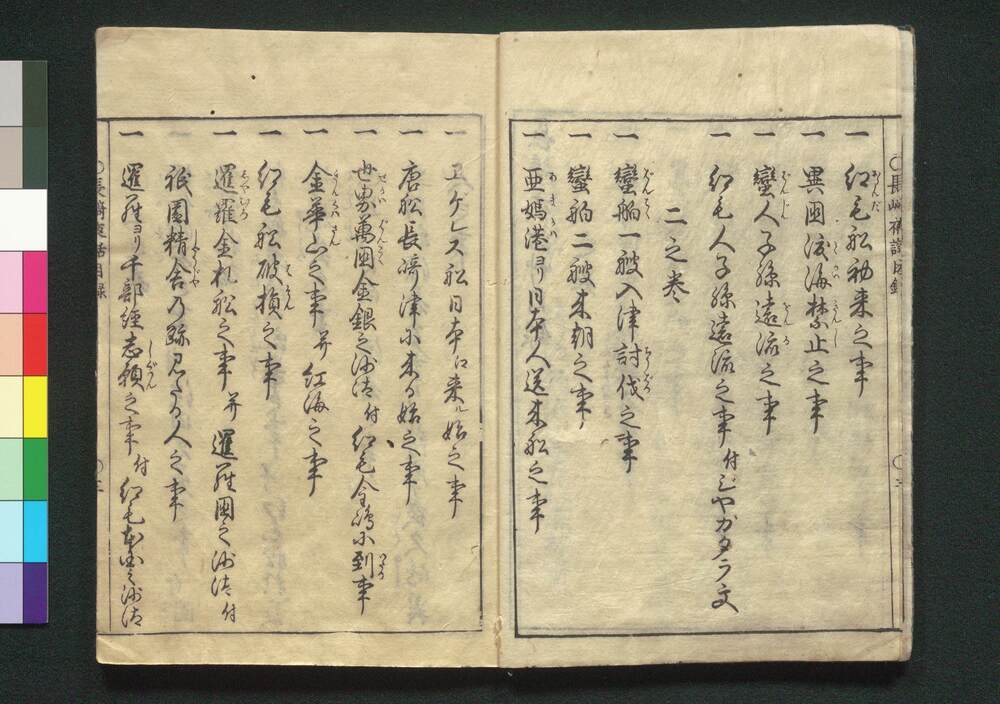 一 紅毛舩初来之事
一 異国渡海禁止之事
一 蠻人子孫遠流之事
一 紅毛人子孫遠流之事 付じやがタラ文
二之巻
一 蠻舶一艘入津討伐之事
一 蠻舶二艘来朝之事
一 亜媽港ヨリ日本人送来舩之事
一 ヱケレス舩日本江来ル始之事
一 唐舩長﨑津小来る始之事
一 世界萬国金銀之沙汰 付 紅毛金嶋小到事
一 金華山之事 并 紅海之事
一 紅毛舩破損之事
一 暹羅金札舩之事 并 暹羅国之沙汰 付
祇園精舎乃跡見たる人之事
一 暹羅ヨリ千部経志願之事 付 紅毛本国之沙汰
〇長﨑夜話目録
〇二